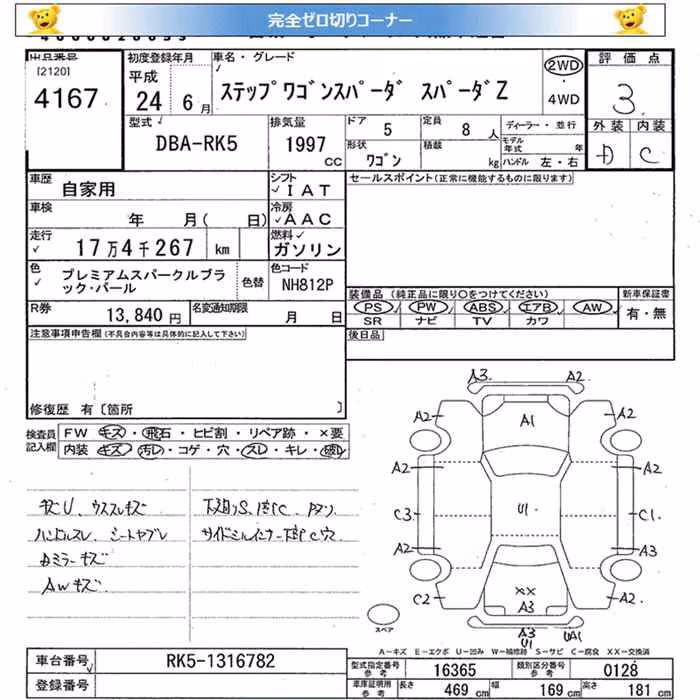 完全ゼロ切りコーナー
出品番号
[2120]
4167
初度登録年月
平成
24年 6月
車名・グレード
ステップワゴンスパーダ スパーダZ
2WD
・
4WD
評価点
3
外装 内装
D C
型式
DBA-RK5
排気量
1997
CC
ドア 5
形状
ワゴン
定員 8 人
積載 kg
ディーラー・並行
モデル年式 年
ハンドル 左・右
車歴
自家用
シフト
IAT
車検 年 月( 日)
冷房
AAC
走行
17万4千267 km
燃料
ガソリン
色
プレミアムスパークルブラック・パール
色替
色コード
NH812P
R券
13,840 円
名変通知期限
月 日
セールスポイント(正常に機能するものに限ります)
装備品(純正品に限り○をつけてください)
PS PW ABS エアB AW
SR ナビ TV カワ
新車保証書
有・無
後日品
注意事項申告欄(不具合内容等は具体的に記入して下さい)
修復歴 有〔箇所 〕
検査員記入欄
FW キズ・飛石・ヒビ割・リペア跡・×要
内装 キズ・汚レ・コゲ・穴・スレ・キレ・破レ
ハンドルスレ、シートヤブレ
ドアミラーキズ
AWキズ
A3 A2
A2 A1 A2
A2 A2
C3 U1 C1
A2 A3
C2 XX A2
A3
A3 UA1
U1
スペア
A-キズ E-エクボ U-凹み W-補修跡 S-サビ C-腐食 XX-交換済
車台番号
RK5-1316782
登録番号
型式指定番号参考
16365
類別区分番号参考
0128
車庫証明用参考
長さ 469 cm
幅 169 cm
高さ 181 cm